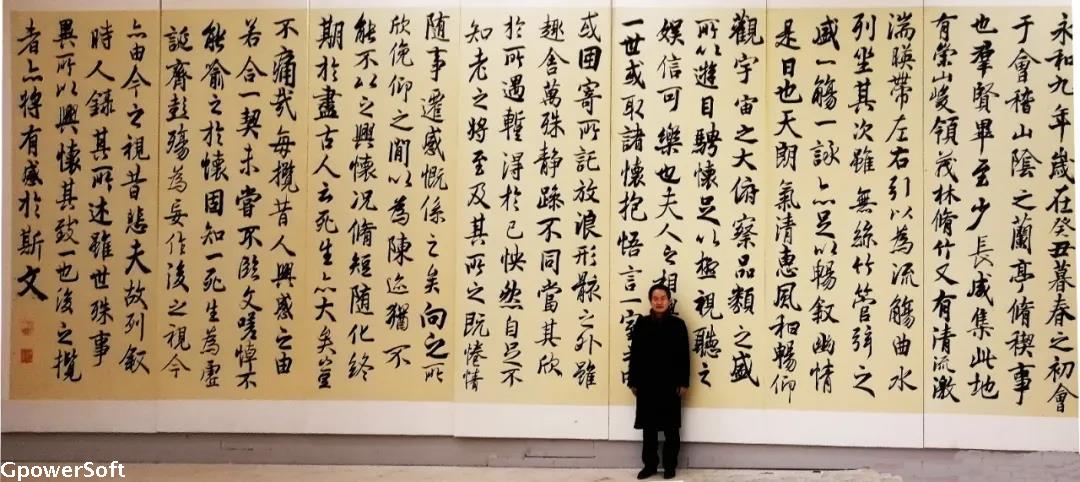 永和九年歲在癸丑暮春之初會
于會稽山陰之蘭亭脩稧事
也羣賢畢至少長咸集此地
有崇山峻領茂林脩竹又有清流激
湍暎帶左右引以為流觴曲水
列坐其次雖無絲竹管弦之
盛一觴一詠亦足以暢叙幽情
是日也天朗氣清惠風和暢仰
觀宇宙之大俯察品類之盛
所以遊目騁懷足以極視聽之
娛信可樂也夫人之相
一世或取諸懷抱悟言一室
或因寄所託放浪形骸之外雖
趣舍萬殊静躁不同當其欣
於所遇蹔得於己怏然自足不
知老之將至及其所之既惓情
随事遷感慨係之矣向之所
欣俛仰之閒以為陳迹猶不
能不以之興懷况脩短随化終
期於盡古人云死生亦大矣豈
不痛哉每攬昔人興感之由
若合一契未嘗不臨文嗟悼不
能喻之於懷固知一死生為虛
誕齊彭殤為妄作後之視今
亦由今之視昔悲夫故列叙
時人錄其所述雖世殊事
異所以興懷其致一也後之攬
者亦將有感於斯文
GpowerSoft